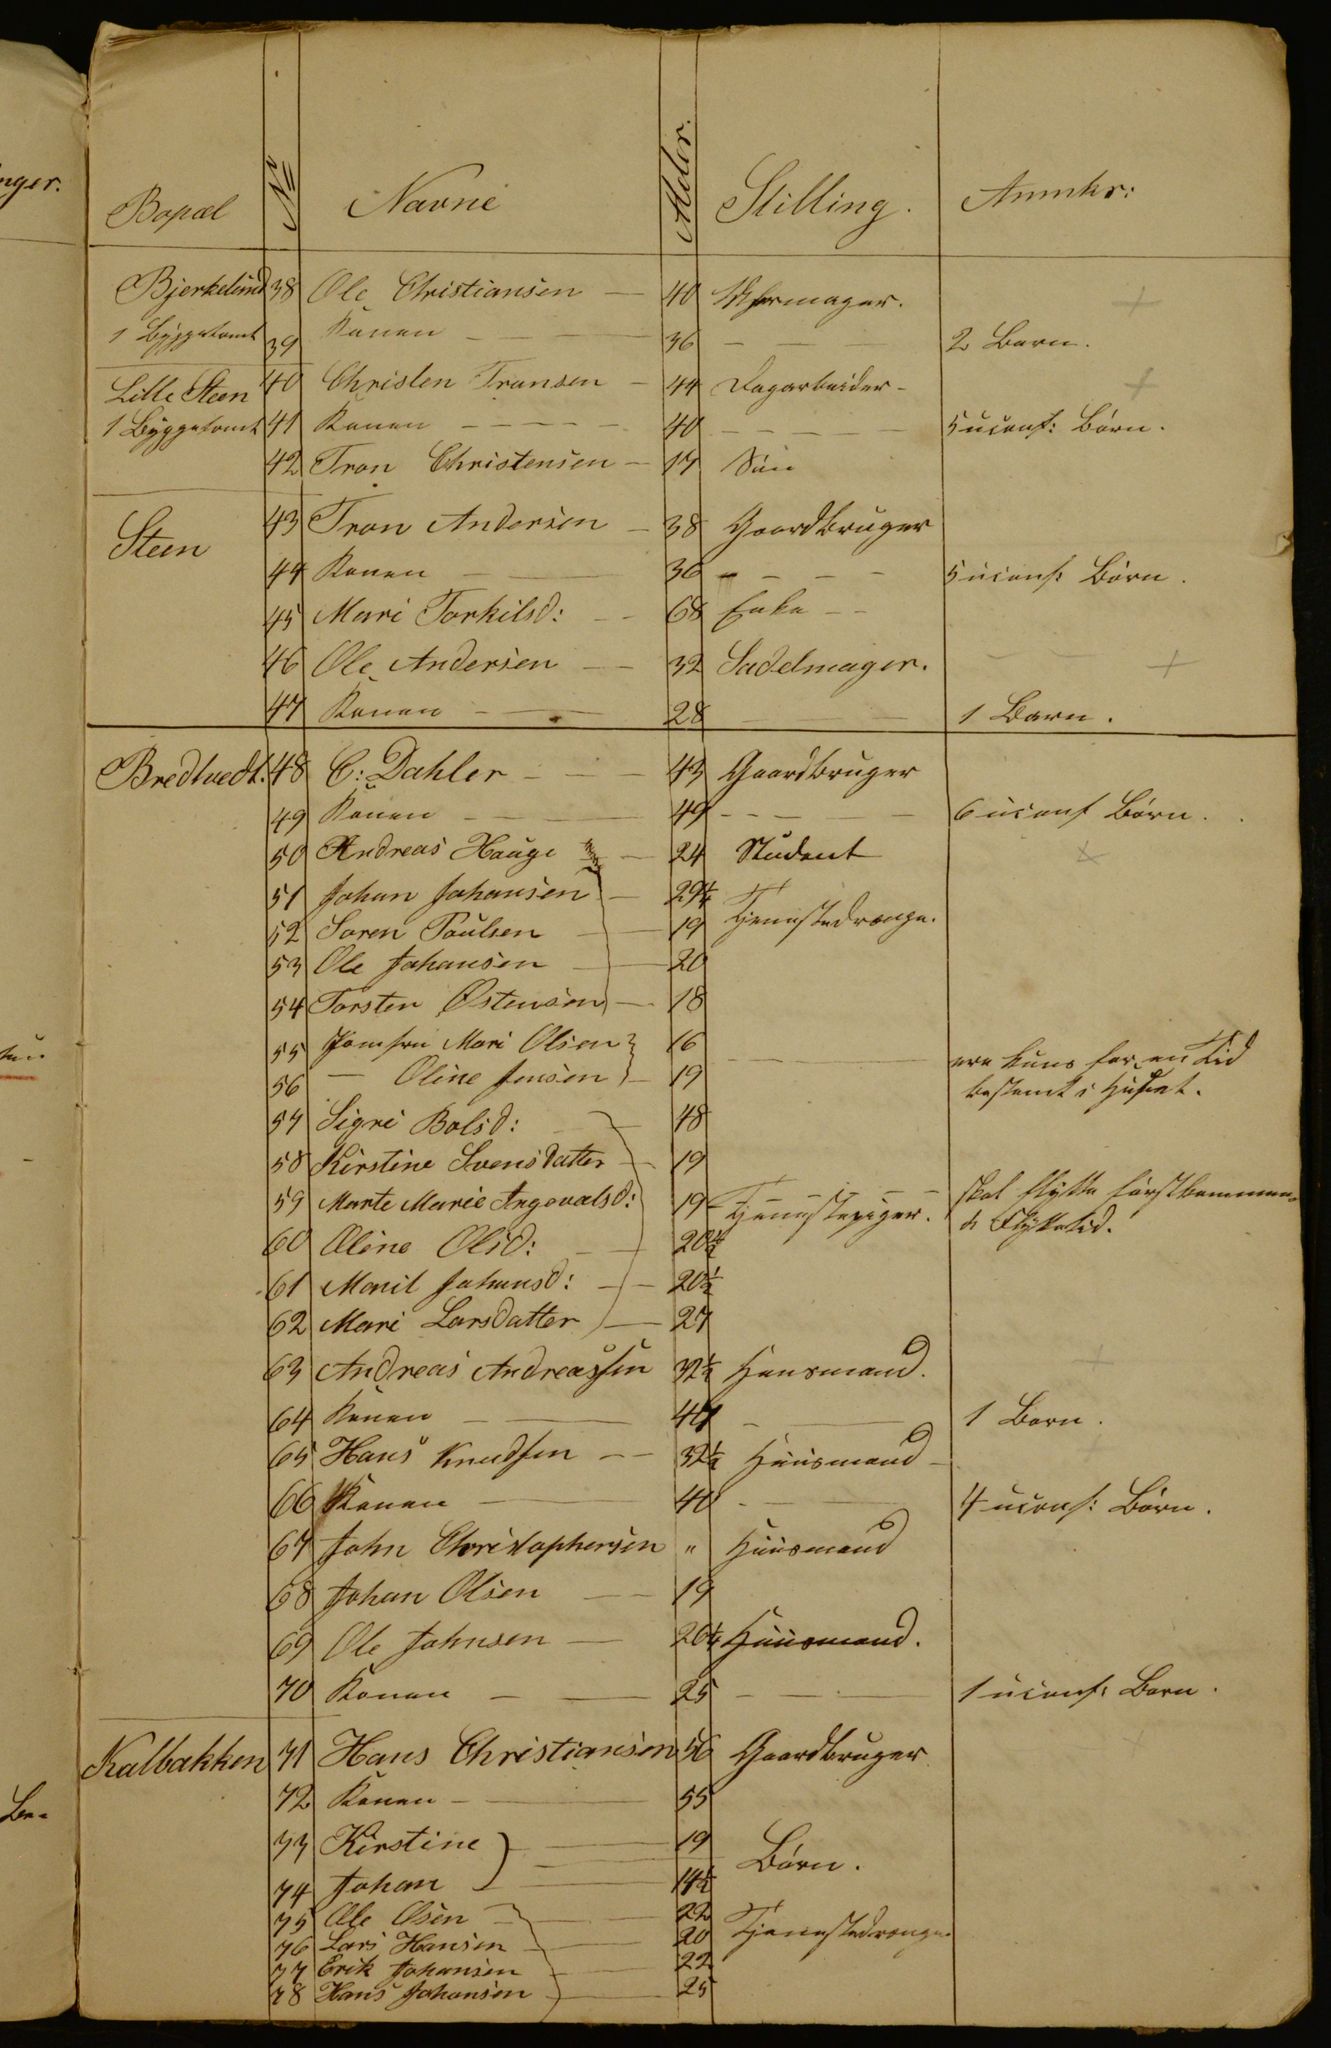 nger.
Bopæl Nº Navne Alder. Stilling. Anmkr:
Bjerkelund 38 Ole Christiansen — 40
1 Byggetomt 39 Konen — 36 — — — 2 Børn.
Lille Steen 40 Christen Transen — 44 Dagarbeider —
1 Byggetomt 41 Konen — — — 40 — — — — 5 uconf: Børn.
42 Tron Christensen — 17 Søn
Steen 43 Tron Andersen — 38 Gaardbruger
44 Konen — — 36 — — — — 5 uconf: Børn.
45 Mari Torkilsd: — — 68 Enke — —
46 Ole Andersen — 32 Sadelmager. — —
47 Konen — — 28 — 1 Barn.
Bredtvedt. 48 C: Dahler — — — 43 Gaardbruger
49 Konen — — — 49 — — — — 6 uconf Børn.
50 Andreas Hauge — 24 Student
51 Johan Johansen — 29¼
52 Soren Poulsen — 19 Tjenestedrenge.
53 Ole Johansen — 20
54 Torsten Østensen — 18
55 Jomfru Mari Olsen 16 — — ere kuns for en Tid
56 — Oline Jensen — 19 bestemt i Huset.
57 Sigri Bolsd: — 48
58 Kirstine Svensdatter — 19
59 Marte Marie Ingevalsd: 19 Tjenestepiger. skal flytte førstkommen-
60 Oline Olsd: — 20½ de Flyttetid.
61 Marit Johansd: — 20½
62 Mari Larsdatter — 27
63 Andreas Andreassen 32½ Huusmand.
64 Konen — — 47 — — 1 Barn.
65 Hans Knudsen — — 32½ Huusmand —
66 Konen — 40 — — 4 uconf: Børn.
67 John Christophersen " Huusmand
68 Johan Olsen — 19
69 Ole Johnsen — 26¼ Huusmand.
70 Konen — — 25 — — — 1 uconf: Barn.
Kalbakken 71 Hans Christiansen 56 Gaardbruger
72 Konen — — 55
73 Kirstine — 19
74 Johan — 14½ Børn.
75 Ole Olsen — 22
76 Lars Hansen — 20 Tjenestedrenge.
77 Erik Johansen — 22
78 Hans Johansen — 25
Be-